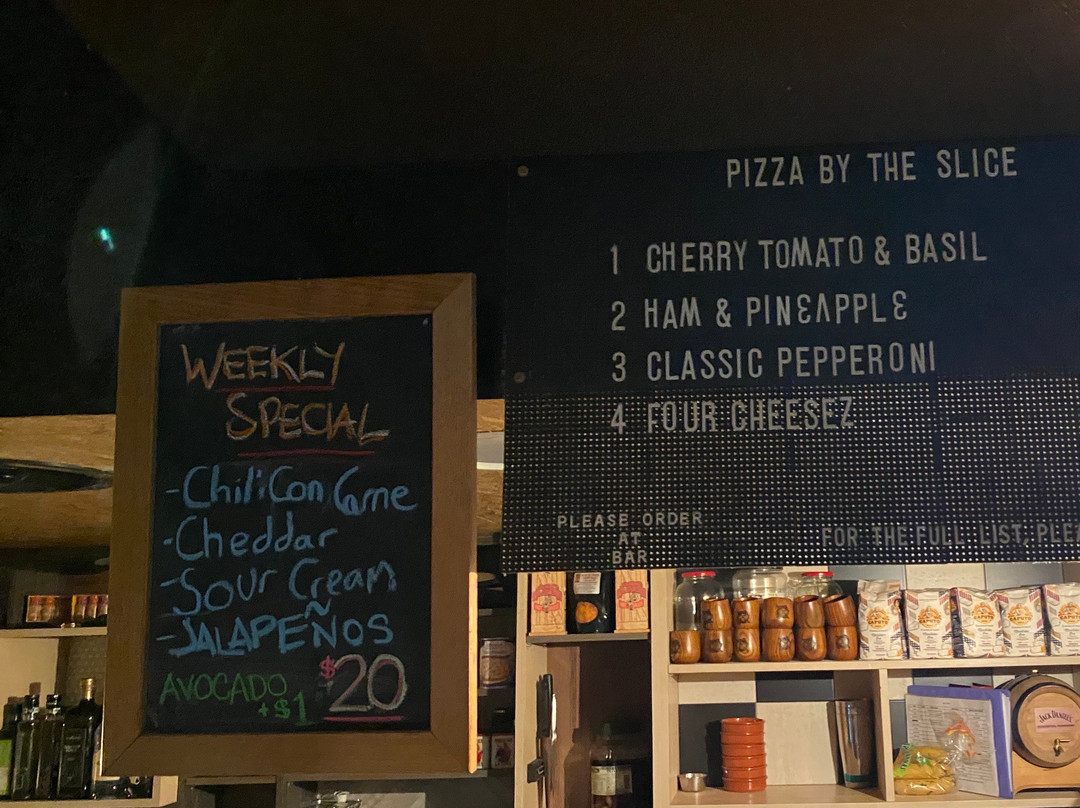 WEEKLY
SPECIAL
-Chili Con Carne
-Cheddar
-Sour Cream
-JALAPEÑOS
AVOCADO
+$1
$20
PIZZA BY THE SLICE
1 CHERRY TOMATO & BASIL
2 HAM & PINEAPPLE
3 CLASSIC PEPPERONI
4 FOUR CHEESEZ
PLEASE ORDER
AT
BAR
FOR THE FULL LIST, PLEA
JACK DANIEL'S